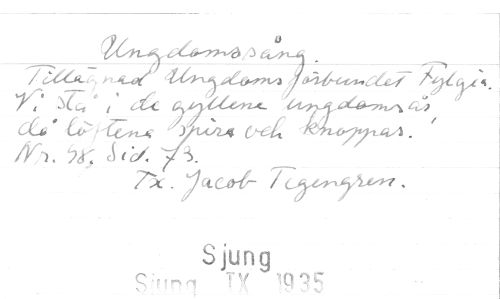 Ungdomssång.
Tillägnad Ungdomsförbundet Fylgia.
Vi stå i de gyllene ungdomsår
då löftena spira och knoppas.
Nr. 98, Sid. 73.
Tx. Jacob Tegengren.
Sjung
Sjung IX 1935